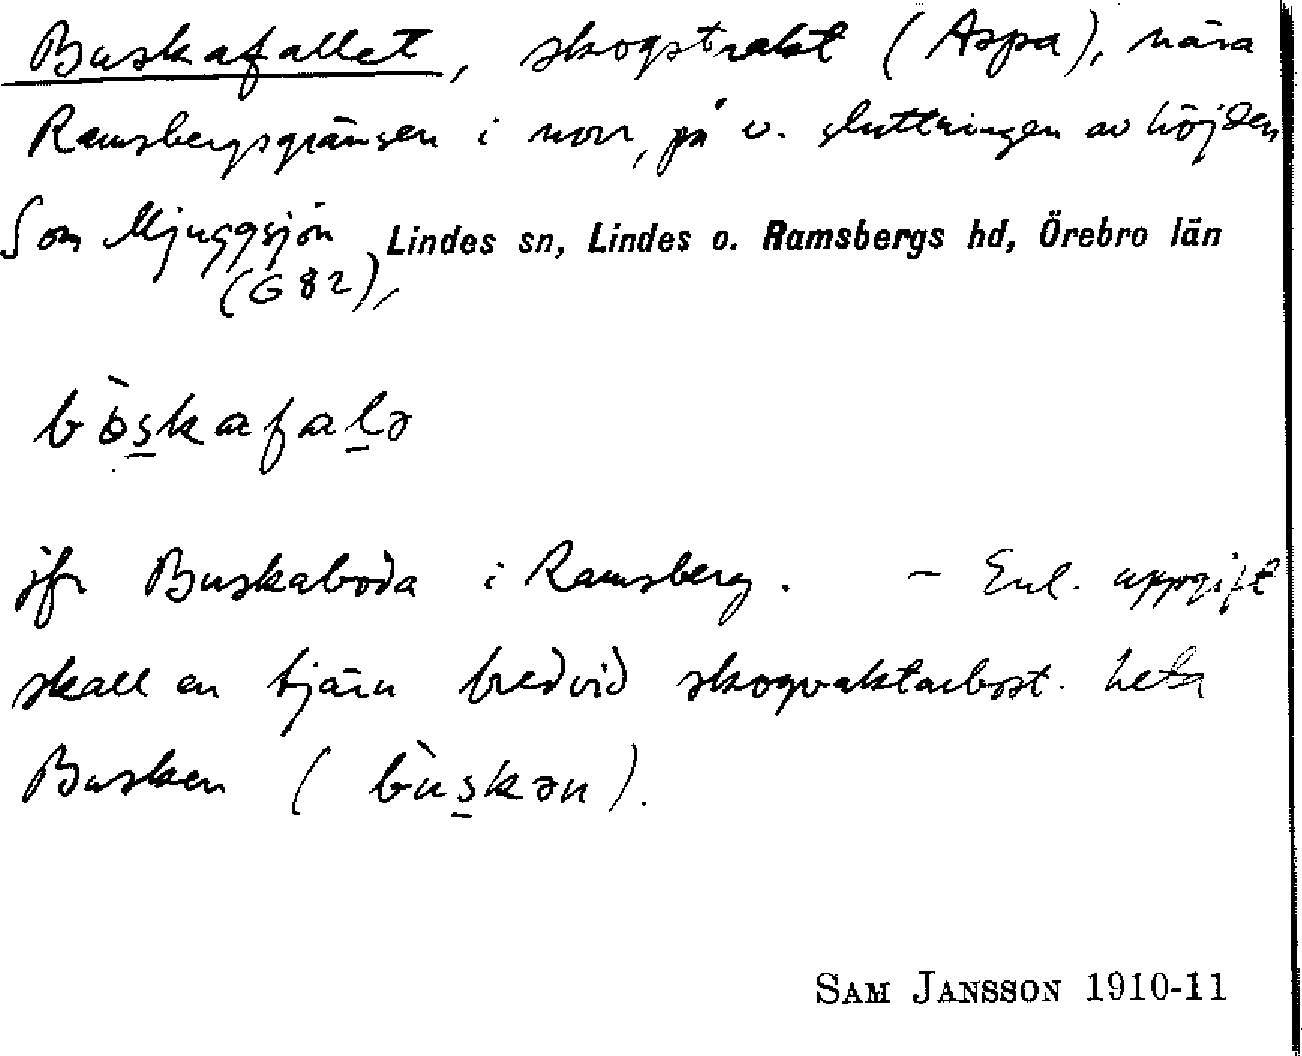 Buskafallet, skogstrakt (Aspa), nära
Ramsbergsgränsen i norr, på v. sluttningen av höjden
S om Mjuggsjön Lindes sn, Lindes o. Ramsbergs hd, Örebro län
(G 82),
bò̤s̲kafal̲ə
jfr Buskaboda i Ramsberg. – Enl. uppgift
skall en tjärn bredvid skogvaktarbost. heta
Busken (bùs̲kən).
SAM JANSSON 1910-11